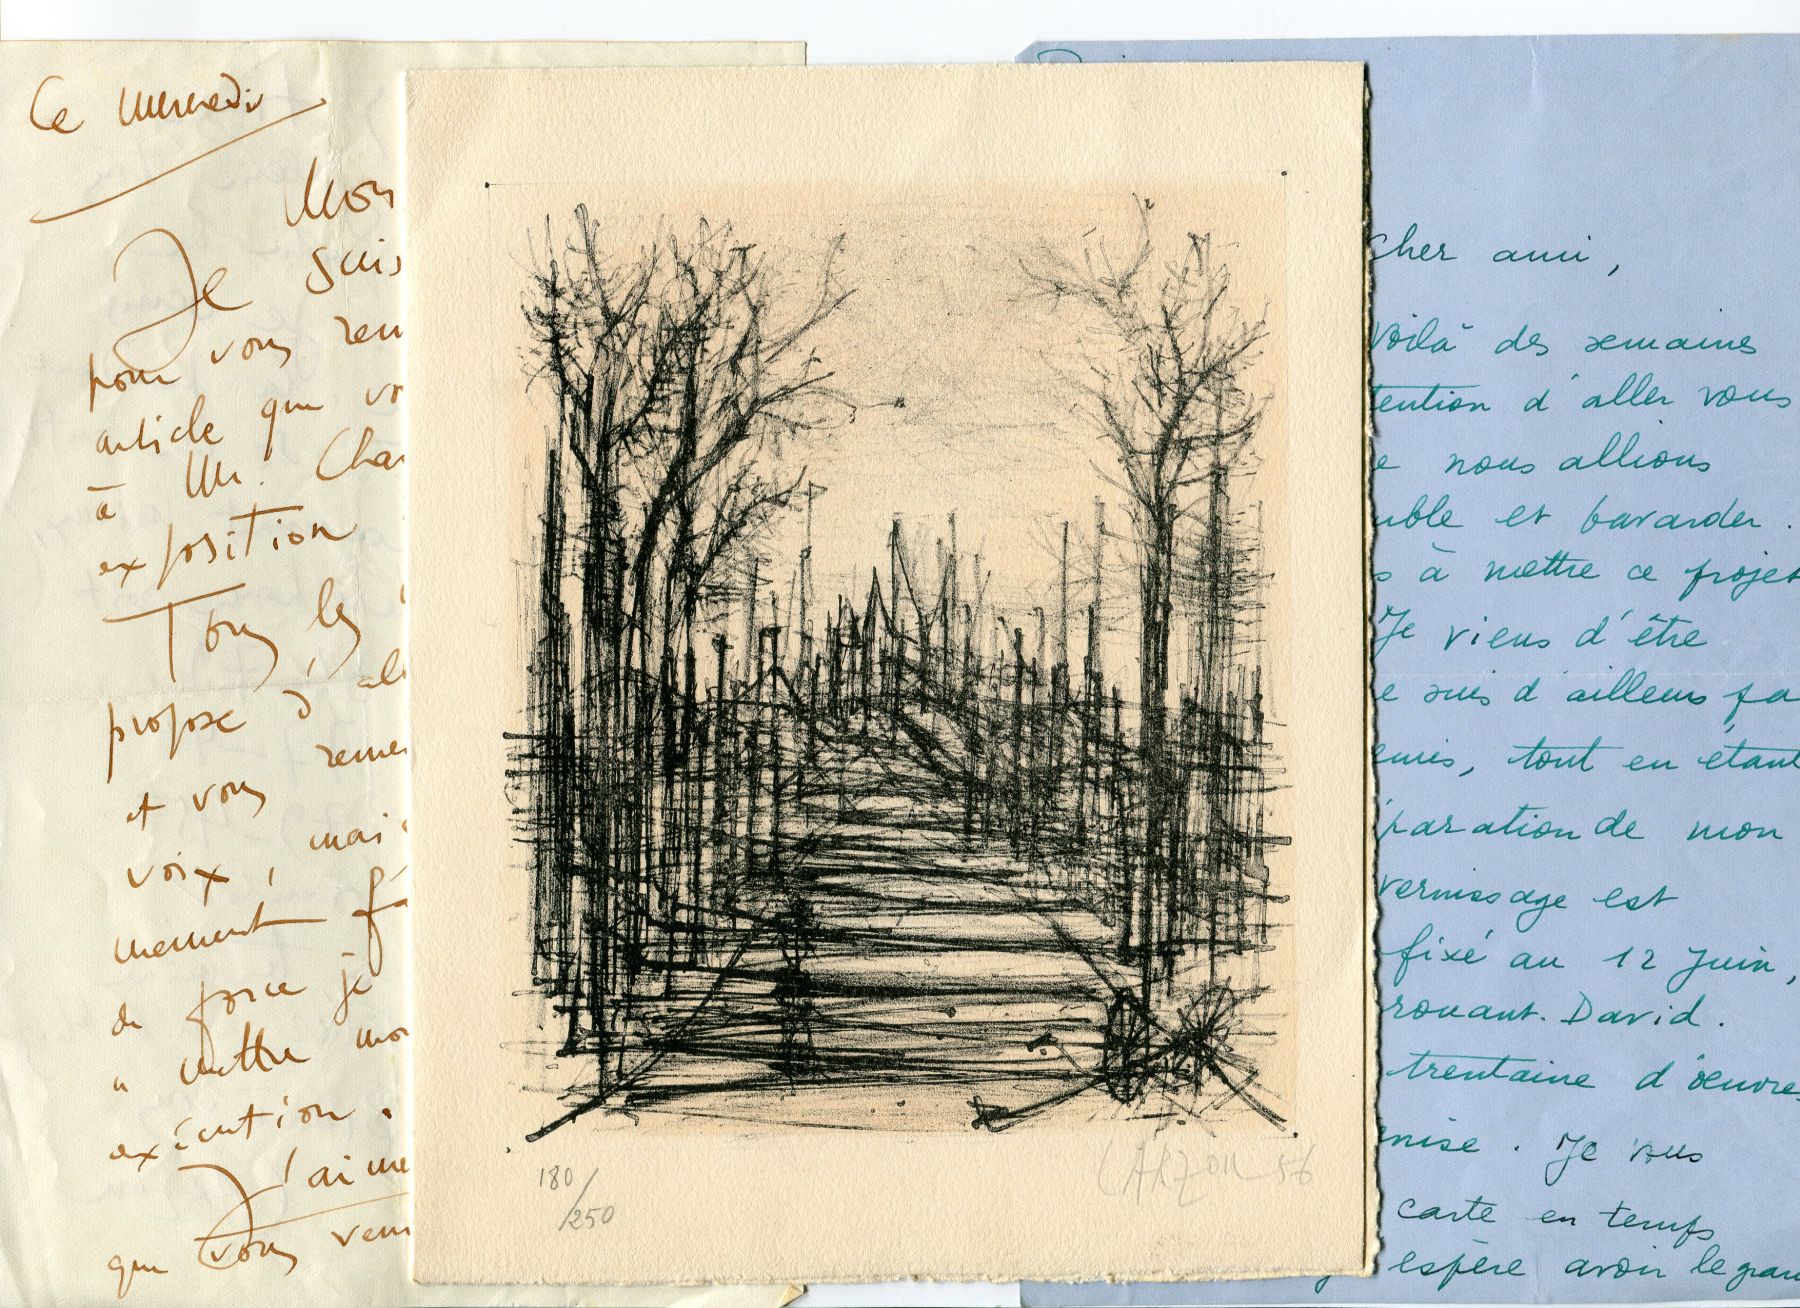 Ce mercredi
Mon
Je suis
pour vous rem
article que vo
à Mr. Char
exposition
Tous les
propose d'all
et vous remer
voix, mais
mement fa
de force je
à mettre mo
exécution.
J'aime
que vous veni
180/250
CARZOU 56
Cher ami,
Voilà des semaines
tention d'aller vous
e nous allions
mble et bavarder.
s à mettre ce projet
Je viens d'être
e suis d'ailleurs fa
emis, tout en étant
paration de mon
vernissage est
fixé au 12 Juin,
rouant. David.
trentaine d'oeuvres
enise. Je vous
carte en temps
espère avoir le gran